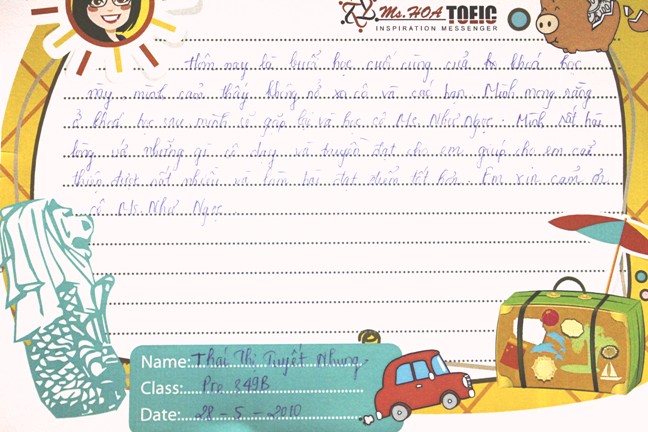 Ms. HOA TOEIC
INSPIRATION MESSENGER
Hôm nay là buổi học cuối cùng của khoá học
này, mình cảm thấy không nỡ xa cô và các bạn. Mình mong rằng
ở khoá học sau mình sẽ gặp lại và học cô Ms. Như Ngọc. Mình rất hài
lòng về những gì cô dạy và truyền đạt cho em, giúp cho em cải
thiện được rất nhiều và làm bài đạt điểm tốt hơn. Em xin cảm ơn
cô Ms. Như Ngọc.
Name: Thái Thị Tuyết Nhung
Class: Pre 249B
Date: 28 - 5 - 2010